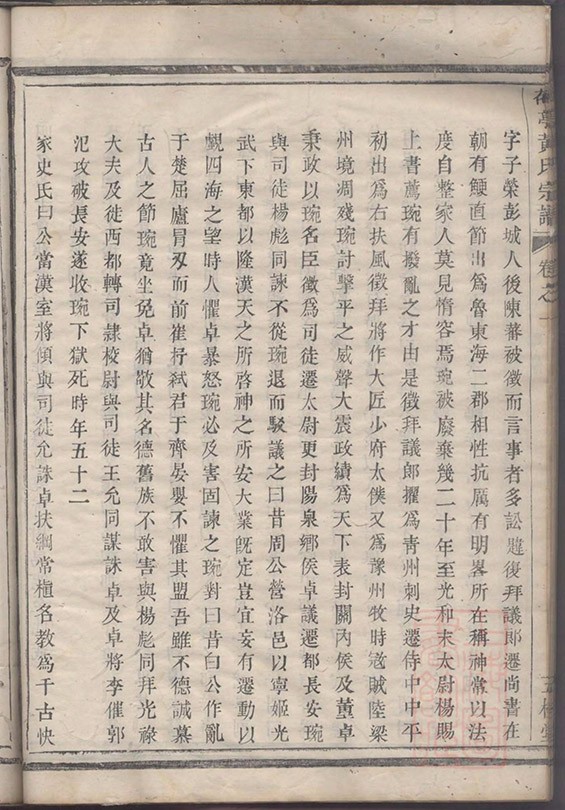 黃氏宗譜 卷之一
字子榮彭城人後陳蕃被徵而言事者多訟韙後拜議郎遷尚書在
朝有鯁直節出爲魯東海二郡相性抗厲有明畧所在稱神常以法
度自整家人莫見惰容焉琬被廢棄幾二十年至光和末太尉楊賜
上書薦琬有撥亂之才由是徵拜議郎擢爲青州刺史遷侍中中平
初出爲右扶風徵拜將作大匠少府太僕又爲豫州牧時寇賊陸梁
州境凋殘琬討擊平之威聲大震政績爲天下表封關內侯及董卓
秉政以琬名臣徵爲司徒遷太尉更封陽泉鄉侯卓議遷都長安琬
與司徒楊彪同諫不從琬退而駁議之曰昔周公營洛邑以寧姬光
武卜東都以隆漢天之所啓神之所安大業旣定豈宜妄有遷動以
覬四海之望時人懼卓暴怒琬必及害固諫之琬對曰昔白公作亂
于楚屈廬冒刃而前崔杼弑君于齊晏嬰不懼其盟吾雖不德誠慕
古人之節琬竟坐免卓猶敬其名德舊族不敢害與楊彪同拜光祿
大夫及徙西都轉司隷校尉與司徒王允同謀誅卓及卓將李傕郭
氾攻破長安遂收琬下獄死時年五十二
家史氏曰公當漢室將傾與司徒允誅卓扶綱常植名教爲千古快